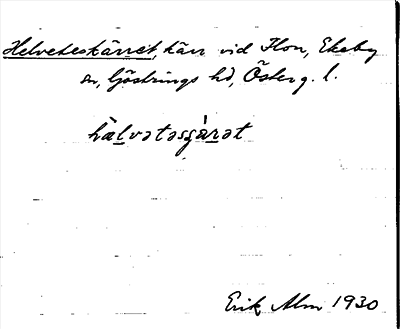 Helveteskärret, kärr vid Flon, Ekeby
sn, Göstrings hd, Österg. l.
hälvətəsʂàrət
Erik Alm 1930